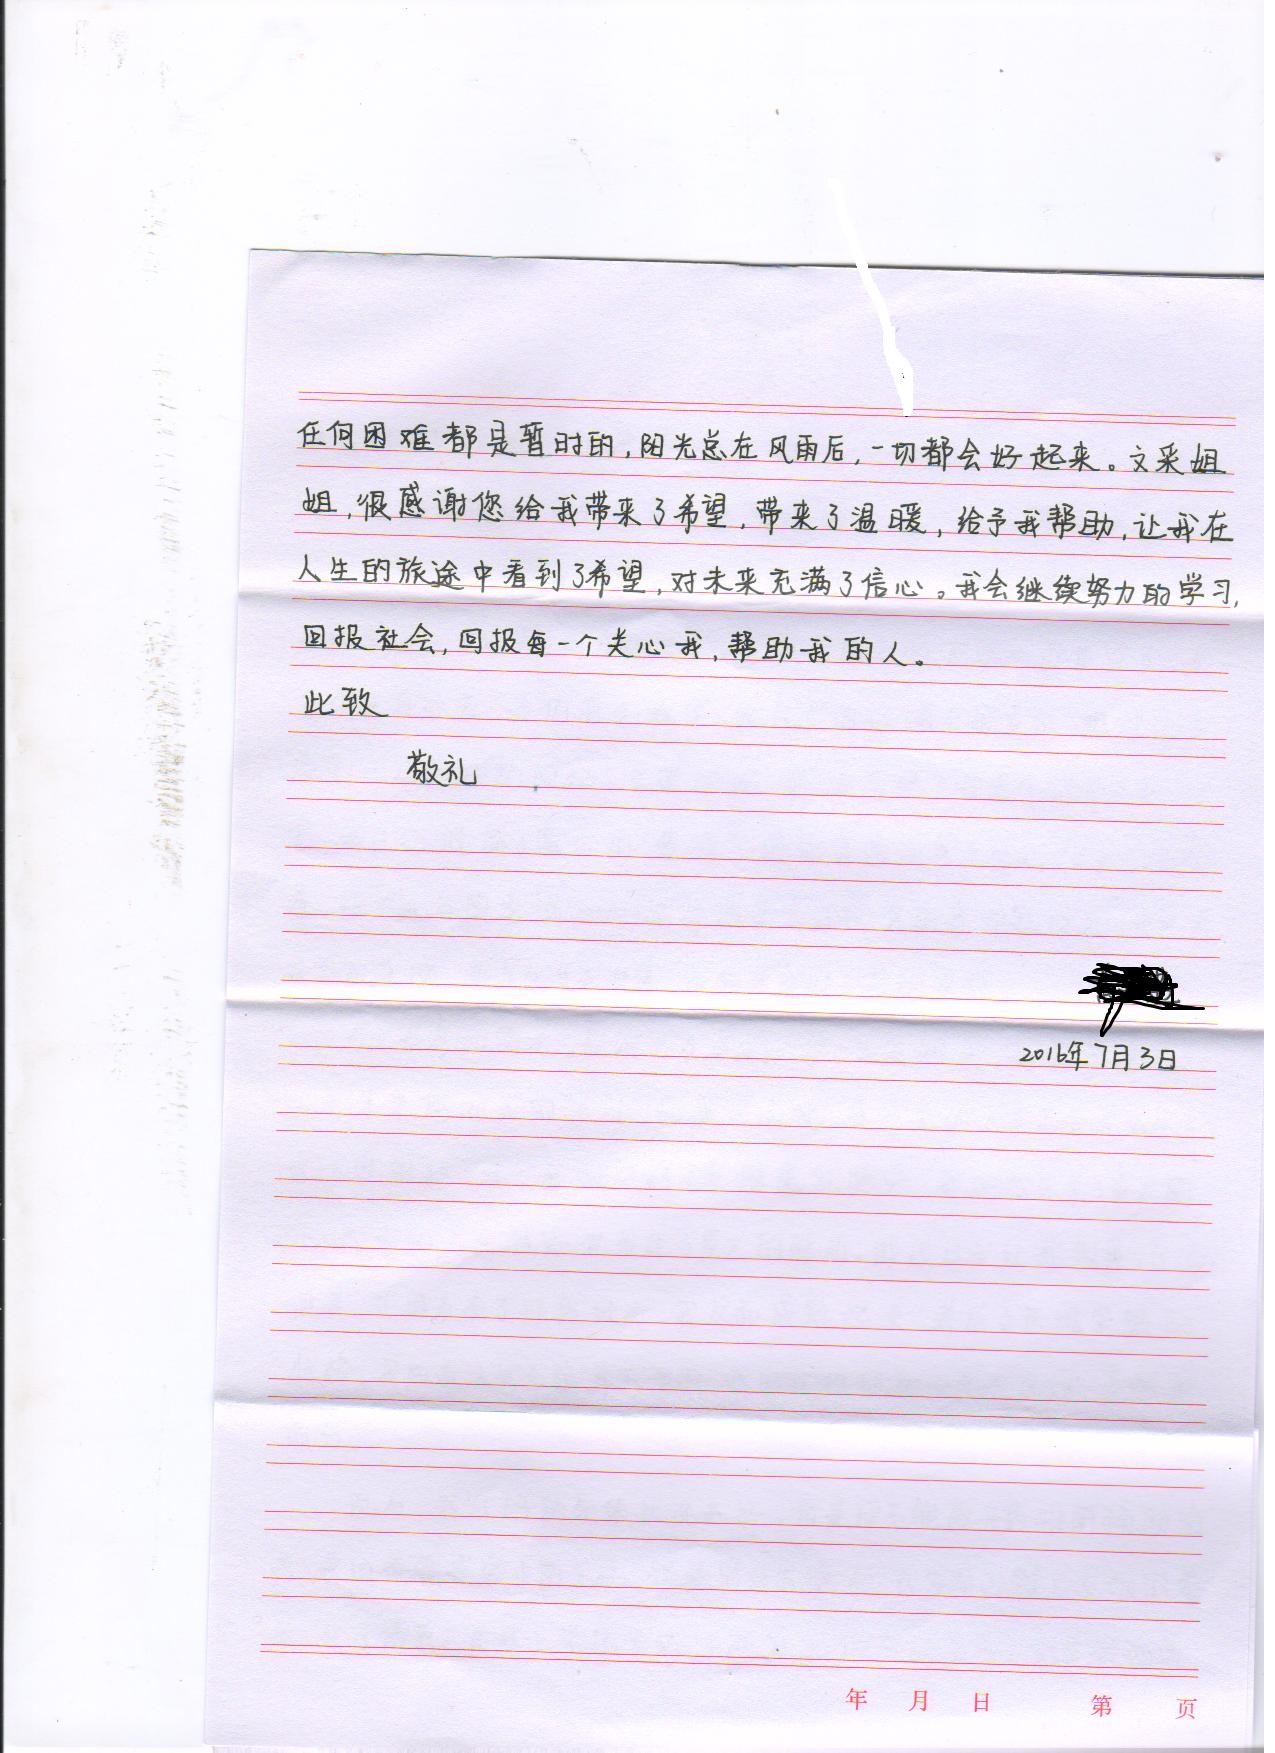 任何困难都是暂时的,阳光总在风雨后,一切都会好起来。文采姐
姐,很感谢您给我带来了希望,带来了温暖,给予我帮助,让我在
人生的旅途中看到了希望,对未来充满了信心。我会继续努力的学习,
回报社会,回报每一个关心我,帮助我的人。
此致
敬礼
2016年7月3日
年 月 日 第 页